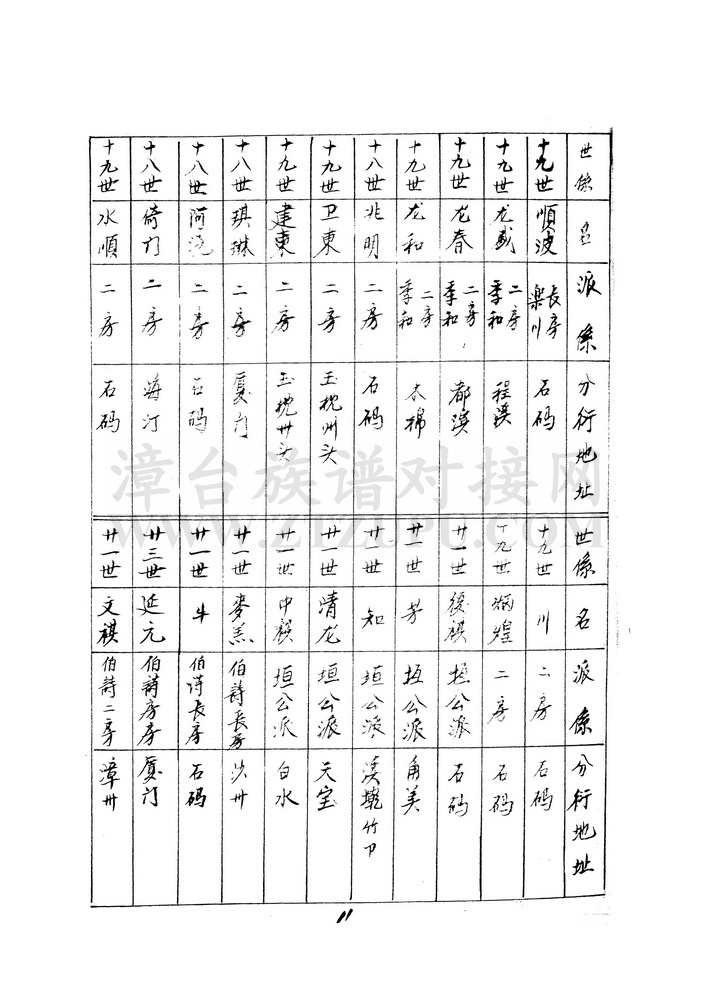 世係 名 派係 分衍地址
十九世 順波 长房栄川 石码
十九世 龙盛 二房季和 程溪
十九世 龙春 二房季和 都溪
十九世 龙和 二房季和 木棉
十八世 兆明 二房 石码
十九世 卫東 二房 玉枕州头
十九世 建東 二房 玉枕州头
十八世 琪琳 二房 厦门
十八世 阿 二房 石码
十八世 倚汀 二房 海汀
十九世 水順 二房 石码
世係 名 派係 分衍地址
十九世 川 二房 石码
十九世 炳煌 二房 石码
廿一世 祺 垣公派 石码
廿一世 芳 垣公派 角美
廿一世 知 垣公派 溪墘竹卩
廿一世 清龙 垣公派 天宝
廿一世 中祺 垣公派 白水
廿一世 麥羔 伯詩長房 沙卅
廿一世 牛 伯诗长房 石码
廿三世 延元 伯詩房房 厦门
廿一世 文祺 伯詩二房 漳卅
11
漳台族谱对接网
www.ztzupu.com